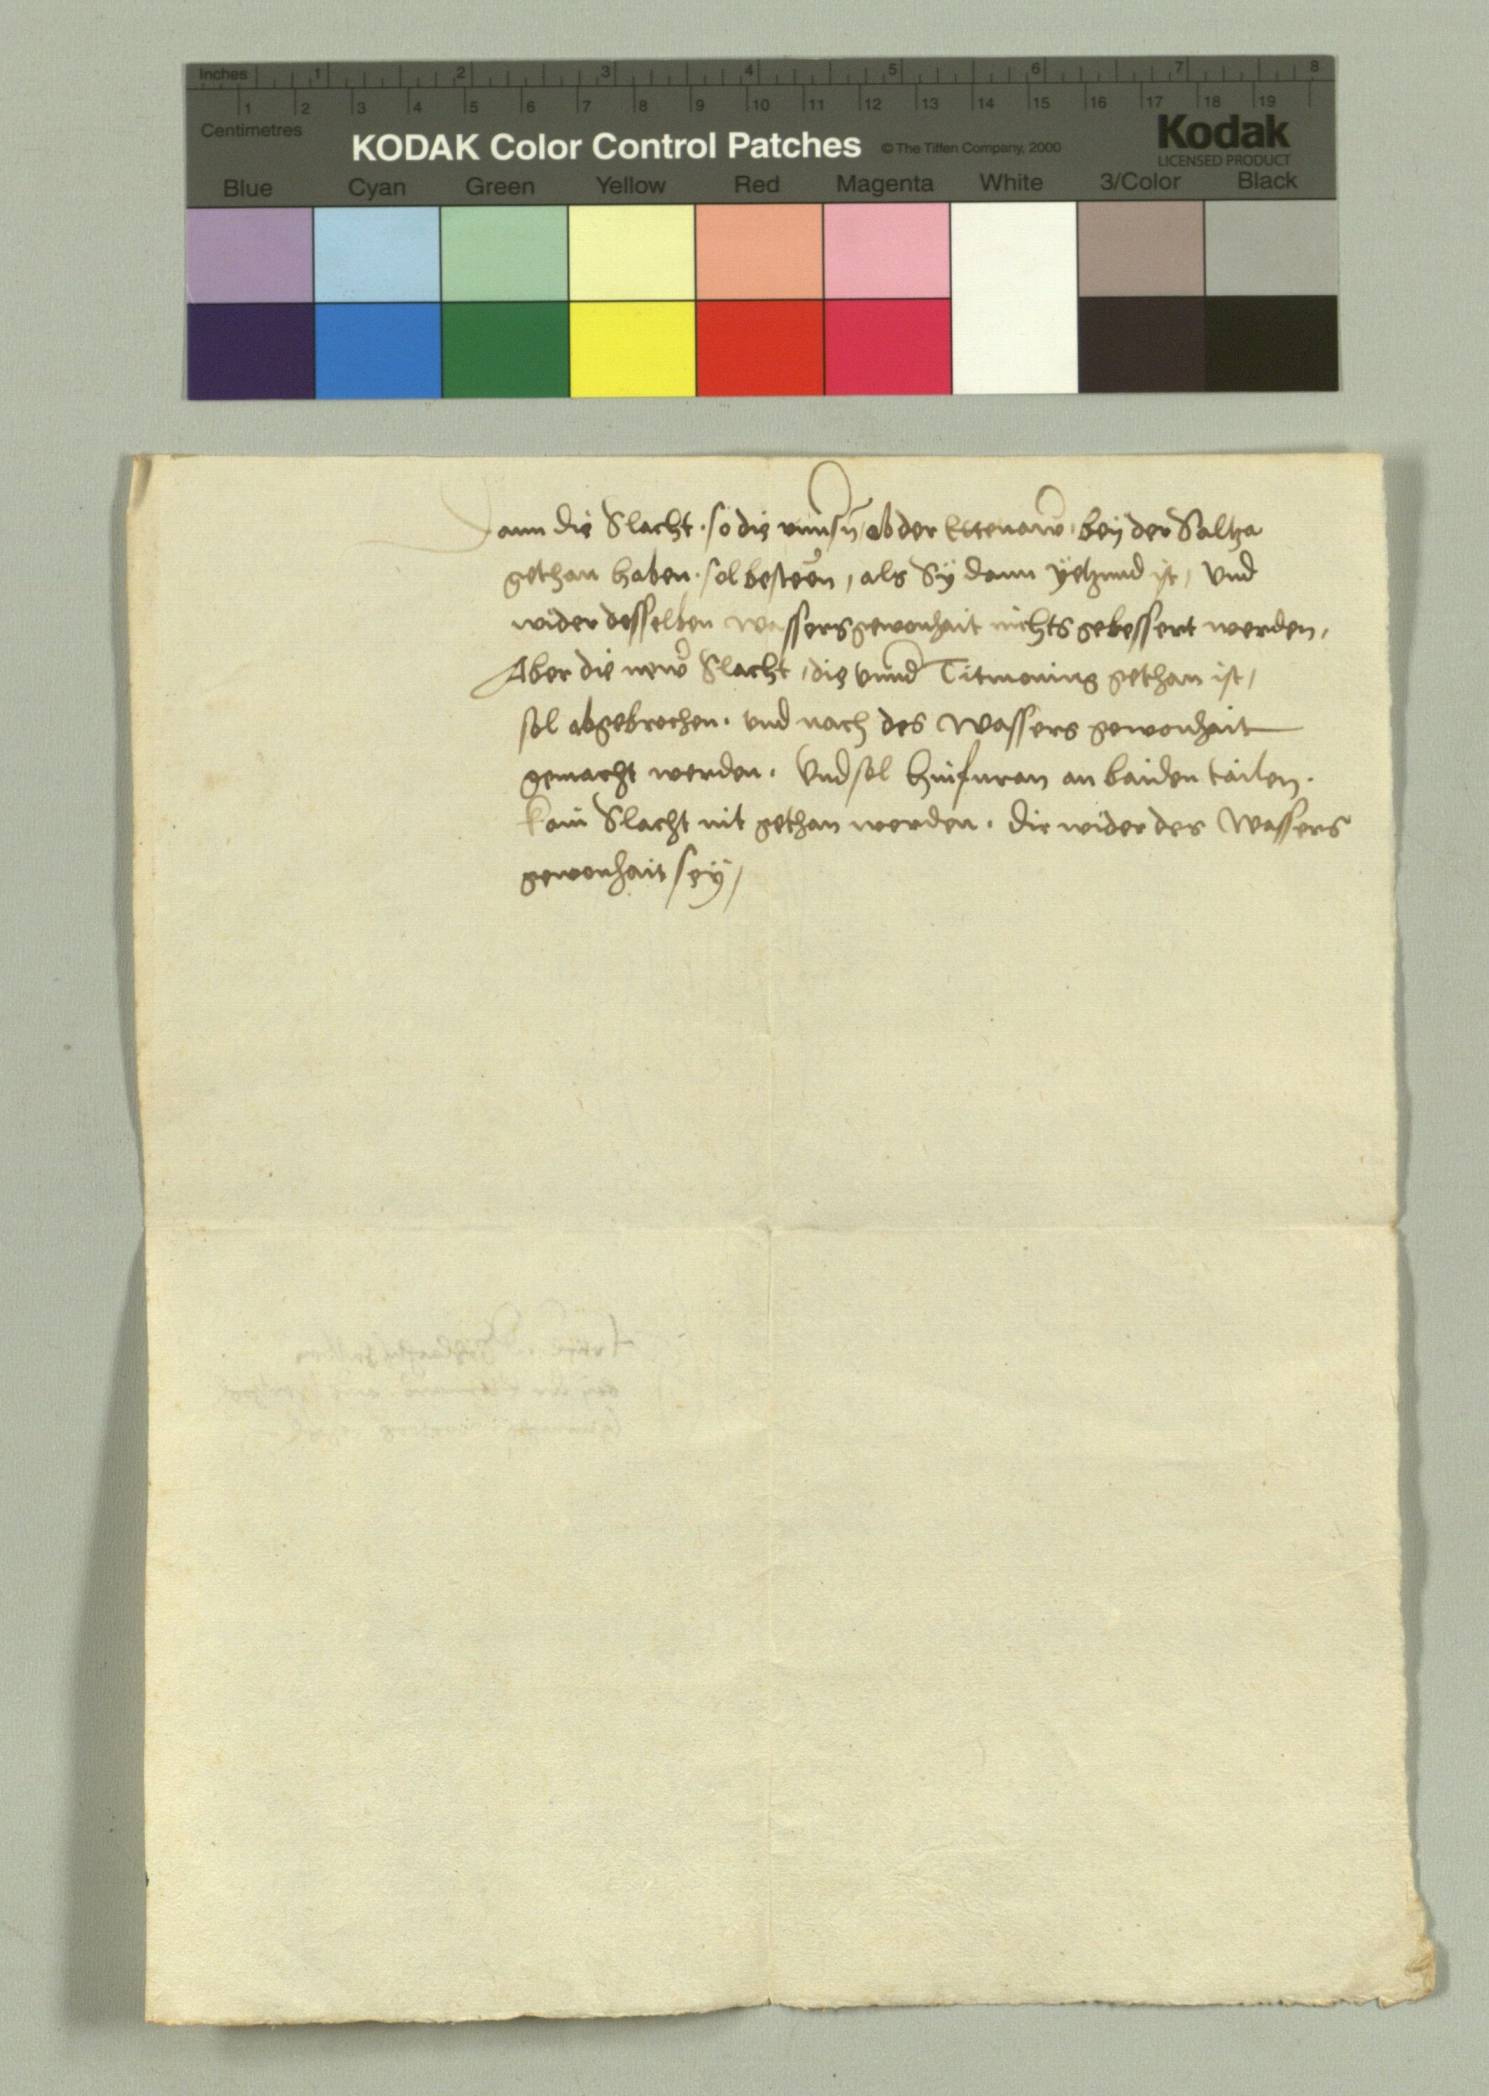 Inches 1 2 3 4 5 6 7 8
1 2 3 4 5 6 7 8 9 10 11 12 13 14 15 16 17 18 19
Centimetres
KODAK Color Control Patches © The Tiffen Company, 2000 Kodak
LICENSED PRODUCT
Blue Cyan Green Yellow Red Magenta White 3/Color Black
Dann die Slacht · so die ob der Ettenaw · beÿ der Saltza
gethan haben · sol besteen / als Sÿ dann ÿetzund ist / Vnd
wider desselben wassers gewonhait nichts gebessert werden /
Aber die new Slacht / die vnnd Titmoning gethan ist /
sol abgebrochen · vnd nach des Wassers gewonhait
gemacht werden · Vnd sol hinfuran an baiden tailen ·
kain Slacht nit gethan werden · die wider des Wassers
gewonhait seÿ /